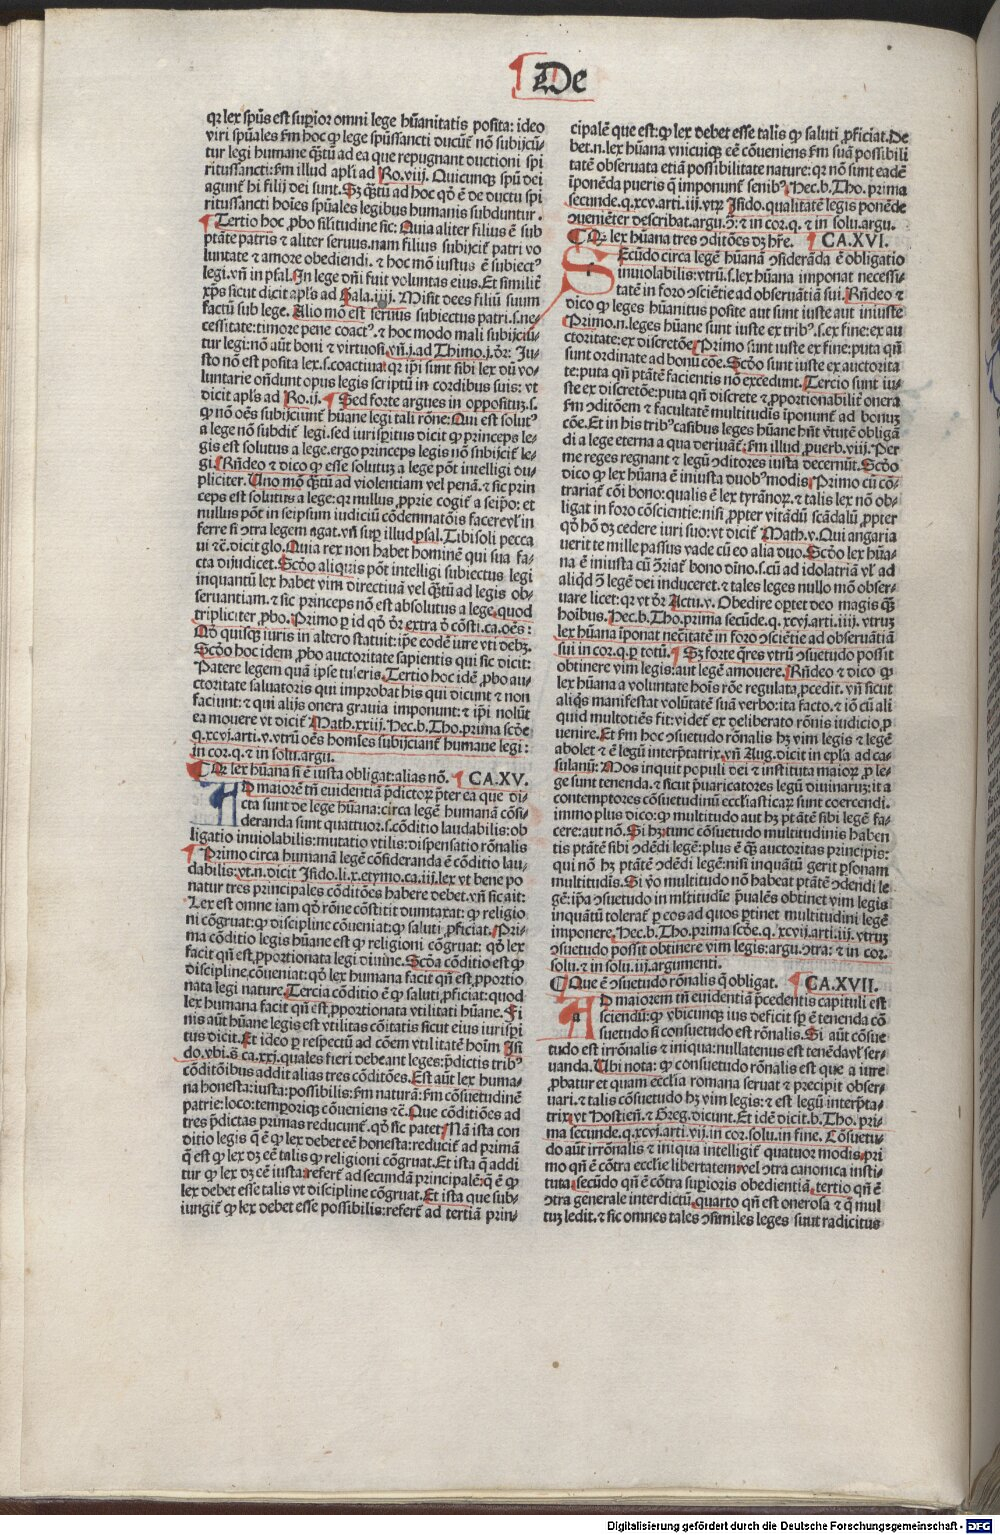 De
qꝛ lex spūs est supior omni lege hūanitatis posita: ideo
viri spūales ẜm hoc ꝙ lege spūssancti ducūt᷑ nō subijciū-
tur legi humane q̄ꝫtū ad ea que repugnant ductioni spi
ritussancti: ẜm illud apl̓i ad Ro.viij. Quicunqꝫ spū dei
agunt᷑ hi filij dei sunt. Sꝫ q̄ꝫtū ad hoc qd̓ ē de ductu spi
ritussancti hoīes spūales legibus humanis subduntur.
¶ Tertio hoc ꝓbo silitudine sic: Quia aliter filius ē sub
ptāte patris ⁊ aliter seruus. nam filius subijcit᷑ patri vo
luntate ⁊ amore obediendi. ⁊ hoc mō iustus ē subiectꝰ
legi. vn̄ in psal. In lege dn̄i fuit voluntas eius. Et similit᷑
xp̄s sicut dicit apl̓s ad Gala.iiij. Misit deus filiū suum
factū sub lege. Alio mō est seruus subiectus patri.s.ne-
cessitate: timore pene coactꝰ. ⁊ hoc modo mali subijciū-
tur legi: nō aūt boni ⁊ virtuosi. vn̄.j.ad Thimo.j.dr̄: Iu-
sto nō est posita lex.s.coactiua: qꝛ ip̄i sunt sibi lex dū vo-
luntarie on̄dunt opus legis scriptū in cordibus suis: vt
dicit apl̓s ad Ro.ij. ¶ Sed forte argues in oppositū.s.
ꝙ nō oēs subijciunt᷑ hūane legi tali rōne: Qui est solutꝰ
a lege nō subdit᷑ legi. sed iurisperitus dicit ꝙ princeps le-
gis est solutus a lege. ergo princeps legis nō subijcit᷑ le-
gi. Rn̄deo ⁊ dico ꝙ esse solutus a lege pōt intelligi du-
pliciter. Uno mō q̄ꝫtū ad violentiam vel penā. ⁊ sic prin
ceps est solutus a lege: qꝛ nullus ꝓprie cogit᷑ a seip̄o: et
nullus pōt in seipsum iudiciū cōdemnatōis facere vl̓ in
ferre si ↄtra legem agat. vn̄ suꝑ illud psal. Tibi soli pecca
ui ⁊c̄. dicit glo. Quia rex non habet hominē qui sua fa-
cta dijudicet. Scd̓o aliquis pōt intelligi subiectus legi
inquantū lex habet vim directiuā vel q̄ꝫtū ad legis ob-
seruantiam. ⁊ sic princeps nō est absolutus a lege. quod
tripliciter ꝓbo. Primo ꝑ id qd̓ dr̄ extra d̓ cōsti.ca.oēs:
Qd̓ quisqꝫ iuris in altero statuit: ip̄e eodē iure vti debꝫ.
Scd̓o hoc idem ꝓbo auctoritate sapientis qui sic dicit:
Patere legem quā ip̄se tuleris. Tertio hoc idē ꝓbo au-
ctoritate saluatoris qui improbat his qui dicunt ⁊ non
faciunt: ⁊ qui alijs onera grauia imponunt: ⁊ ip̄i nolūt
ea mouere vt dicit᷑ Math.xxiij. Hec.b.Tho.prima scd̓e
q.xcvj.arti.v. vtrū oēs homīes subijciant᷑ humane legi:
in cor.q. ⁊ in solu.argu.
¶ Qꝛ lex hūana si ē iusta obligat: alias nō. ¶ CA.XV.
AD maiorē tn̄ euidentiā p̄dictoꝝ p̄ter ea que di-
cta sunt de lege hūana: circa legē humanā cōsi-
deranda sunt quattuor.s.cōditio laudabilis: ob
ligatio inuiolabilis: mutatio vtilis: dispensatio rōnalis
¶ Primo circa humanā legē cōsideranda ē cōditio lau-
dabilis: vt.n.dicit Isido.li.x.etymo.ca.iij. lex vt bene po
natur tres principales cōditōes habere debet. vn̄ sic ait:
Lex est omne iam qd̓ rōne cōstitit dumtaxat: ꝙ religio
ni cōgruat: ꝙ discipline cōueniat: ꝙ saluti ꝓficiat. Pri-
ma cōditio legis hūane est ꝙ religioni cōgruat: qd̓ lex
facit qn̄ est ꝓportionata legi diuine. Scd̓a cōditio est ꝙ
discipline cōueniat: qd̓ lex humana facit qn̄ est ꝓportio
nata legi nature. Tercia cōditio ē ꝙ saluti ꝓficiat: quod
lex humana facit qn̄ est ꝓportionata vtilitati hūane. Fi
nis aūt hūane legis est vtilitas cōitatis sicut eius iurispi
tus dicit. Et ideo ꝑ respectū ad cōem vtilitatē hoīm Isi
do.vbi.s̄.ca.xxj. quales fieri debeant leges: p̄dictis tribꝰ
cōditōibus addit alias tres cōditōes. Est aūt lex huma-
na honesta: iusta: possibilis: ẜm naturā: ẜm cōsuetudinē
patrie: loco: temporiqꝫ cōueniens ⁊c̄. Que cōditiōes ad
tres p̄dictas primas reducunt᷑. qd̓ sic patet. Nā ista con
ditio legis q̄ ē ꝙ lex debet eē honesta: reducit᷑ ad primā
q̄ est ꝙ lex dꝫ eē talis ꝙ religioni cōgruat. Et ista q̄ addi
tur ꝙ lex dꝫ eē iusta: refert᷑ ad secundā principalē: q̄ ē ꝙ
lex debet esse talis vt discipline cōgruat. Et ista que sub-
iungit᷑ ꝙ lex debet esse possibilis: refert᷑ ad tertiā prin-
cipalē que est: ꝙ lex debet esse talis ꝙ saluti ꝓficiat. De
bet.n.lex hūana vnicuiqꝫ eē cōueniens ẜm suā possibili
tatē obseruata etiā possibilitate nature: qꝛ nō sunt eadē
īponēda pueris q̄ imponunt᷑ senibꝰ. Hec.b.Tho.prima
secunde.q.xcv.arti.iij. vtꝝ Isido. qualitatē legis ponēde
ↄuenient᷑ describat.argu.ↄ̄: ⁊ in cor.q. ⁊ in solu.argu.
¶ Qꝛ lex hūana tres ↄditōes dꝫ hr̄e. ¶ CA.XVI.
SEcūdo circa legē hūanā ↄsiderāda ē obligatio
inuiolabilis: vtrū.s.lex hūana imponat necessi-
tatē in foro ↄsciētie ad obseruātiā sui. Rn̄deo ⁊
dico ꝙ leges hūanitus posite aut sunt iuste aut iniuste
Primo.n.leges hūane sunt iuste ex tribꝰ.s.ex fine: ex au
ctoritate: ex discretōe. Primo sunt iuste ex fine: puta qn̄
sunt ordinate ad bonū cōe. Scd̓o sunt iuste ex auctorita
te: puta qn̄ ptātē facientis nō excedunt. Tercio sunt iu-
ste ex discretōe: puta qn̄ discrete ⁊ ꝓportionabilit᷑ onera
ẜm ↄditōem ⁊ facultatē multitudīs īponunt᷑ ad bonuꝫ
cōe. Et in his tribꝰ casibus leges hūane hn̄t v̓tutē obligā
di a lege eterna a qua deriuāt᷑: ẜm illud ꝓuerb.viij. Per
me reges regnant ⁊ legū ↄditores iusta decernūt. Scd̓o
dico ꝙ lex hūana ē iniusta duobꝰ modis. Primo cū cō-
trariat᷑ cōi bono: qualis ē lex tyrānoꝝ. ⁊ talis lex nō ob-
ligat in foro cōscientie: nisi ꝓpter vitādū scādalū: ꝓpter
qd̓ hō dꝫ cedere iuri suo: vt dicit᷑ Math.v. Qui angaria
uerit te mille passus vade cū eo alia duo. Scd̓o lex hūa-
na ē iniusta cū ↄ̄riat᷑ bono diuīo.s.cū ad idolatriā vl̓ ad
aliqd̓ ↄ̄ legē dei induceret. ⁊ tales leges nullo mō obser-
uare licet: qꝛ vt dr̄ Actu.v. Obedire oꝑtet deo magis q̄ꝫ
hoibus. Hec.b.Tho.prima secūde.q.xcvj.arti.iiij. vtruꝫ
lex hūana īponat necitatē in foro ↄsciētie ad obseruātiā
sui in cor.q.ꝑ totū. ¶ Sꝫ forte q̄res vtrū ↄsuetudo possit
obtinere vim legis: aut legē amouere. Rn̄deo ⁊ dico ꝙ
lex hūana a voluntate hoīs rōe regulata ꝓcedit. vn̄ sicut
aliq̄s manifestat volūtatē suā verbo: ita facto. ⁊ iō cū ali
quid multotiēs fit: videt᷑ ex deliberato rōnis iudicio ꝓ
uenire. Et ẜm hoc ↄsuetudo rōnalis hꝫ vim legis ⁊ legē
abolet ⁊ ē legū interp̄tatrix. vn̄ Aug. dicit in epl̓a ad ca-
sulanū: Mos inquit populi dei ⁊ instituta maioꝝ ꝓ le-
ge sunt tenenda. ⁊ sicut p̄uaricatores legū diuinaꝝ: ita
contemptores cōsuetudinū eccl̓iasticaꝝ sunt coercendi.
immo plus dico: ꝙ multitudo aut hꝫ ptātē sibi legē fa-
cere: aut nō. Si hꝫ: tunc cōsuetudo multitudinis haben
tis ptātē sibi ↄdēdi legē: plus ē q̄ꝫ auctoritas principis:
qui nō hꝫ ptātē ↄdēdi legē: nisi inquātū gerit ꝑsonam
multitudīs. Si v̓o multitudo nō habeat ptātē ↄdendi le
gē: ip̄a ↄsuetudo in ml̓titudīe p̄ualēs obtinet vim legis
inquātū tolerat᷑ ꝑ eos ad quos ꝑtinet multitudini legē
imponere. Hec.b.Tho.prima scd̓e.q.xcvij.arti.iij. vtruꝫ
ↄsuetudo possit obtinere vim legis: argu.ↄtra: ⁊ in cor.
solu. ⁊ in solu.iij.argumenti.
¶ Que ē ↄsuetudo rōnalis q̄ obligat. ¶ CA.XVII.
AD maiorem tn̄ euidentiā p̄cedentis capituli est
sciendū: ꝙ vbicunqꝫ ius deficit sp̄ ē tenenda cō
suetudo si consuetudo est rōnalis. Si aūt cōsue
tudo est irrōnalis ⁊ iniqua: nullatenus est tenēda vl̓ ser-
uanda. Ubi nota: ꝙ consuetudo rōnalis est que a iure
ꝓbatur et quam eccl̓ia romana seruat ⁊ precipit obser-
uari. ⁊ talis cōsuetudo hꝫ vim legis: ⁊ est legū interp̄ta-
trix vt Hostien̄. ⁊ Greg. dicunt. Et idē dicit.b.Tho.pri-
ma secunde.q.xcvj.arti.vij.in cor.solu.in fine. Cōsuetu-
do aūt irrōnalis ⁊ iniqua intelligit᷑ quatuor modis. pri
mo qn̄ ē cōtra eccl̓ie libertatem: vel ↄtra canonica insti-
tuta. secūdo qn̄ ē cōtra supioris obedientiā. tertio qn̄ ē
ↄtra generale interdictū. quarto qn̄ est onerosa ⁊ q̄ mul
tuꝫ ledit. ⁊ sic omnes tales ↄsimiles leges sunt radicitus
Digitalisierung gefördert durch die Deutsche Forschungsgemeinschaft - DFG